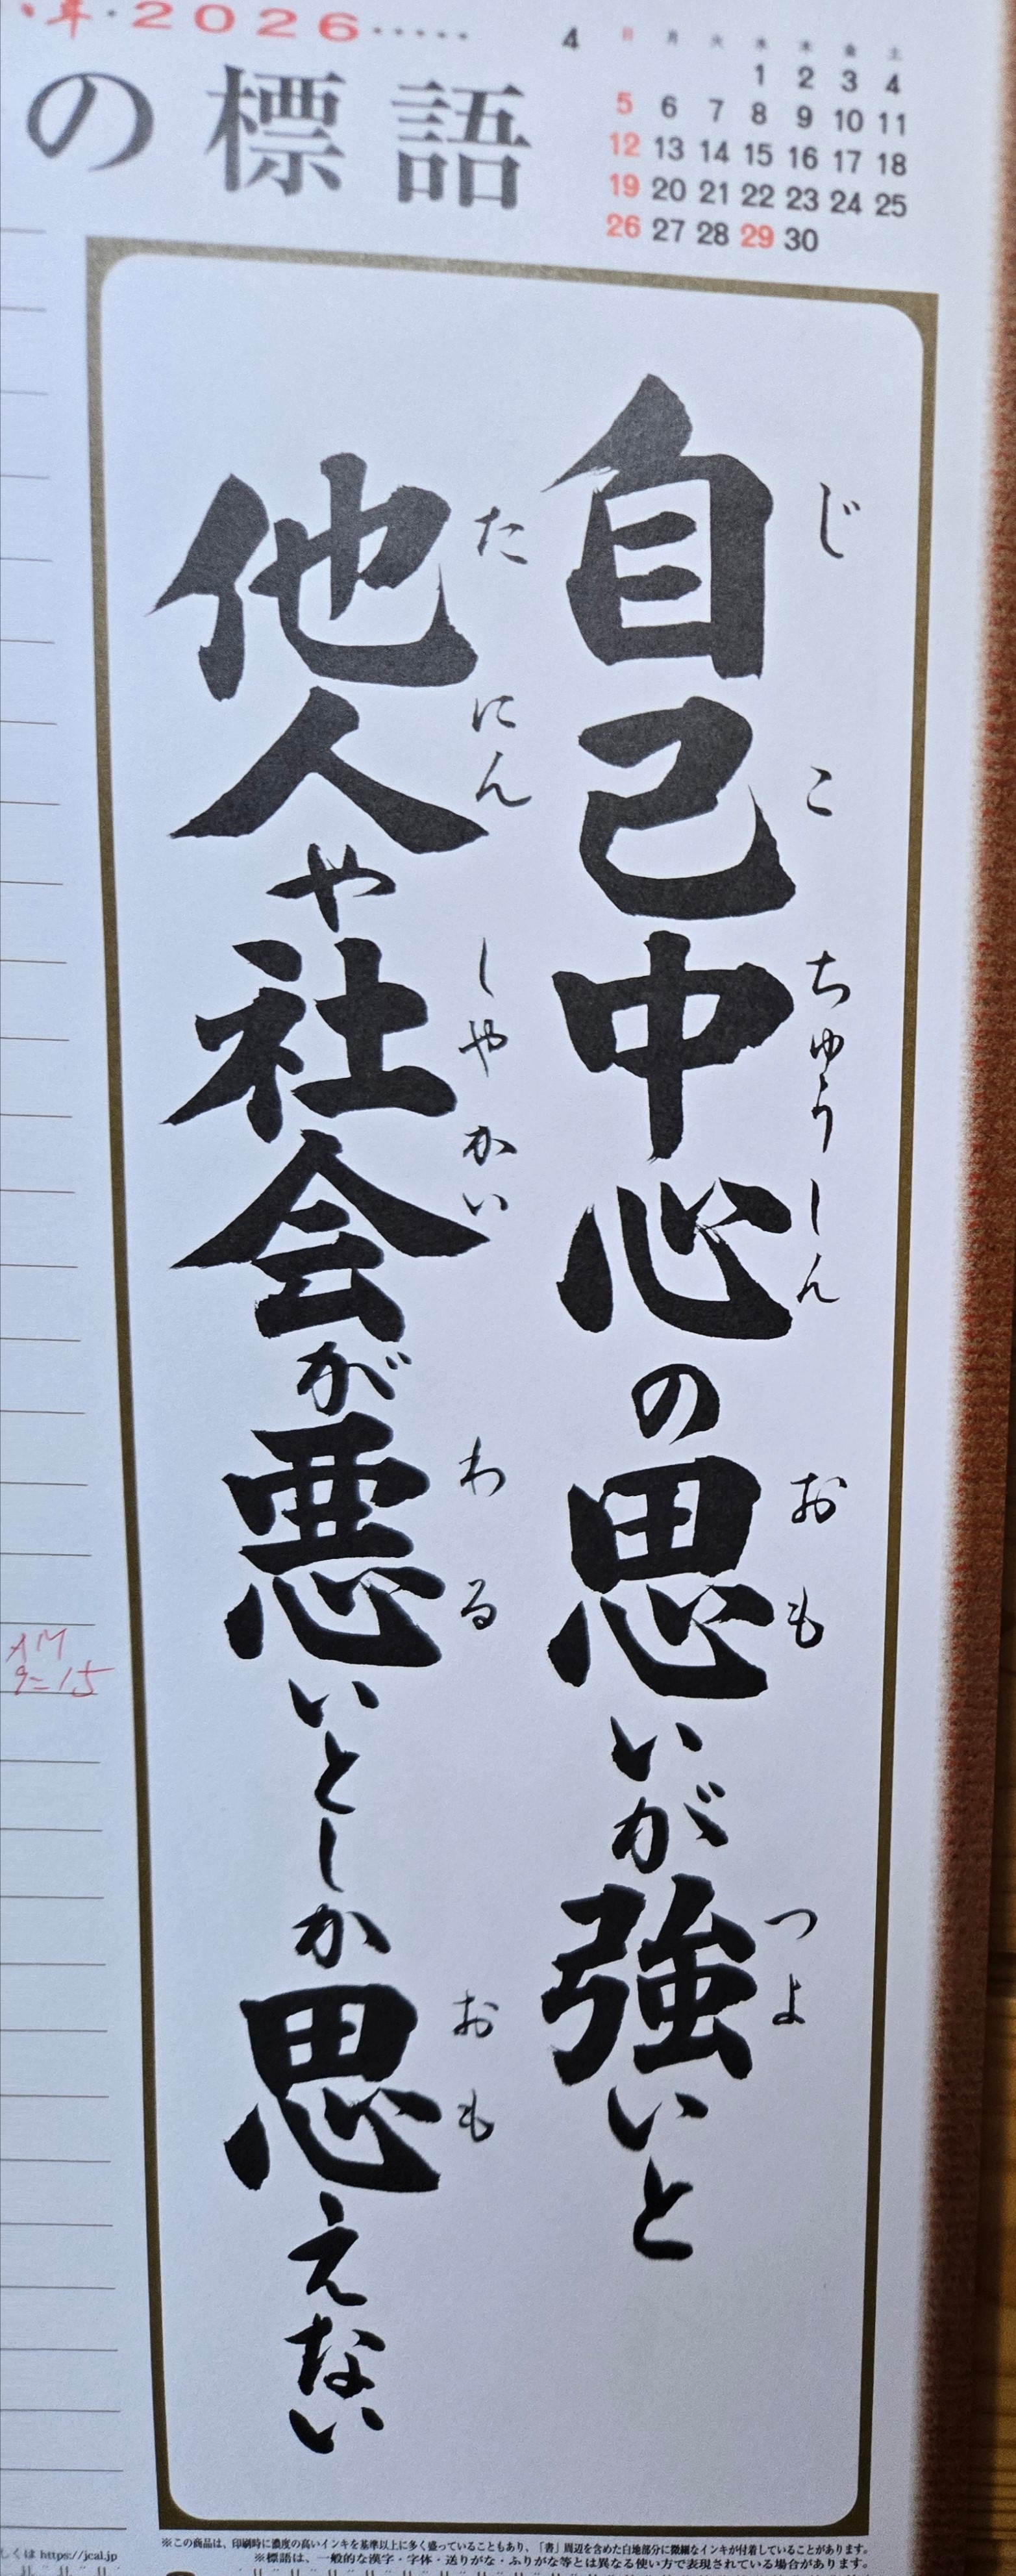 年・2026・・・・・
の標語
4
日 月 火 水 木 金 土
1 2 3 4
5 6 7 8 9 10 11
12 13 14 15 16 17 18
19 20 21 22 23 24 25
26 27 28 29 30
じこちゅうしん おも つよ
自己中心の思いが強いと
たにん しやかい わる おも
他人や社会が悪いとしか思えない
AM
9=15
※この商品は、印刷時に濃度の高いインキを基準以上に多く盛っていることもあり、「書」周辺を含めた白地部分に微細なインキが付着していることがあります。
※標語は、一般的な漢字・字体・送りがな・ふりがな等とは異なる使い方で表現されている場合があります。
しくは https://jcal.jp